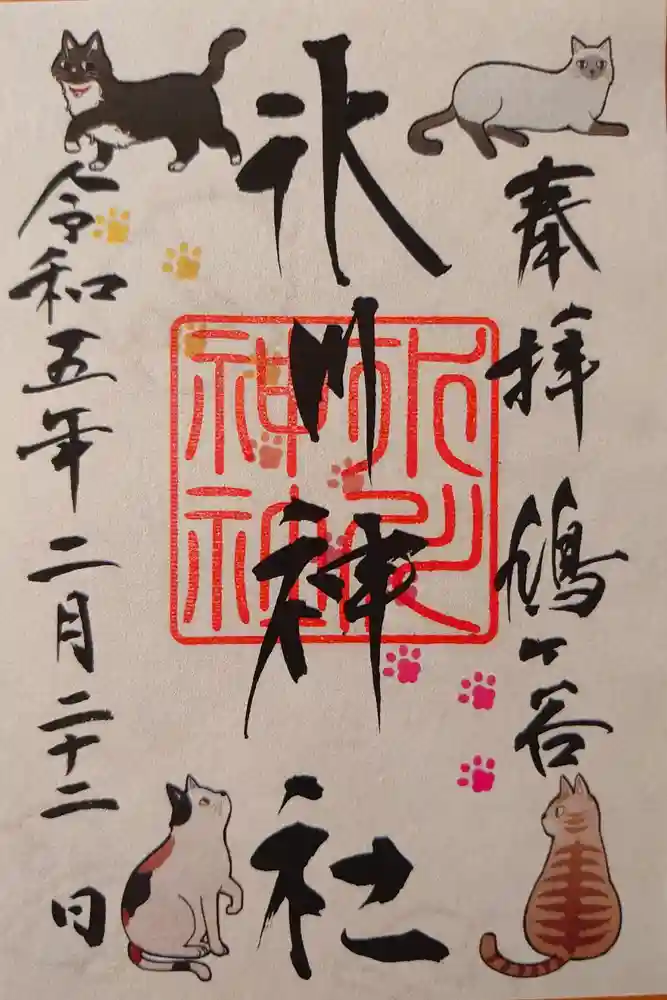 奉拝 鳩ヶ谷
氷川神社
氷川
神社
令和五年二月二十二日